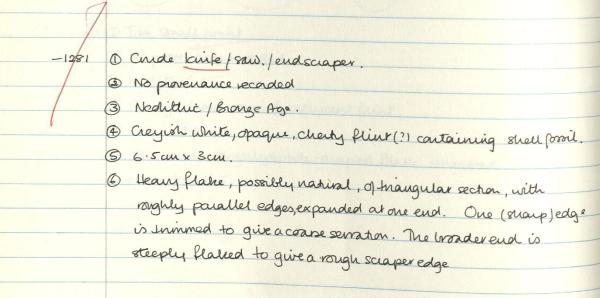 -1281 ① Crude knife/saw./endscraper.
② No provenance recorded
③ Neolithic / Bronze Age.
④ Greyish white, opaque, cherty flint(?) containing shell fossil.
⑤ 6.5cm x 3cm.
⑥ Heavy flake, possibly natural, of triangular section, with
roughly parallel edges, expanded at one end. One (sharp) edge
is trimmed to give a coarse serration. The broader end is
steeply flaked to give a rough scraper edge